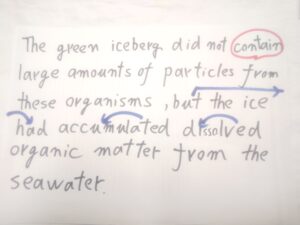 The green iceberg did not contain
large amounts of particles from
these organisms, but the ice
had accumulated dissolved
organic matter from the
seawater.